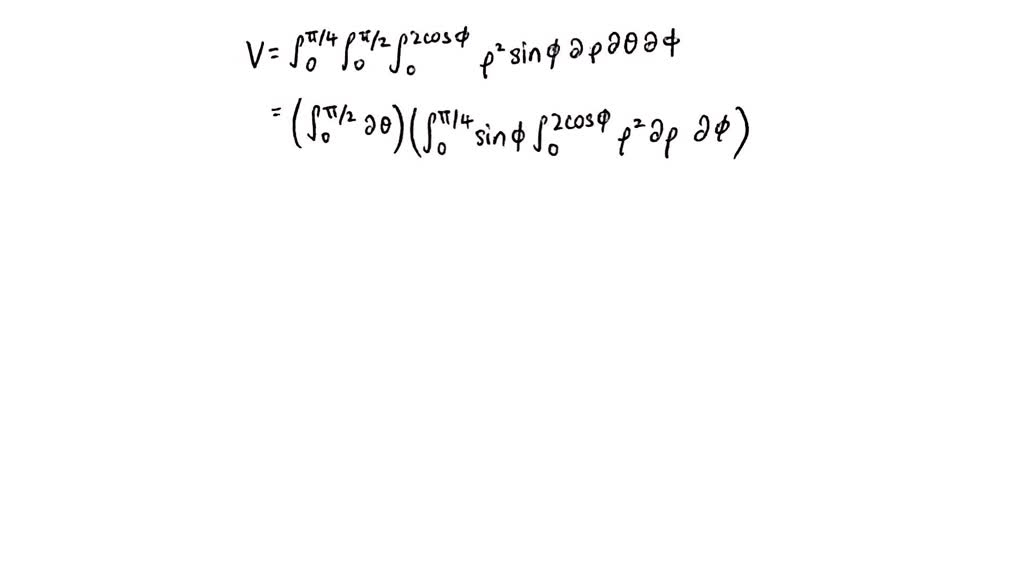 V = ∫₀^π/4 ∫₀^π/2 ∫₀^2cosϕ ρ² sin ϕ ∂ρ ∂θ ∂ϕ
= (∫₀^π/2 ∂θ)(∫₀^π/4 sin ϕ ∫₀^2cosϕ ρ² ∂ρ ∂ϕ)